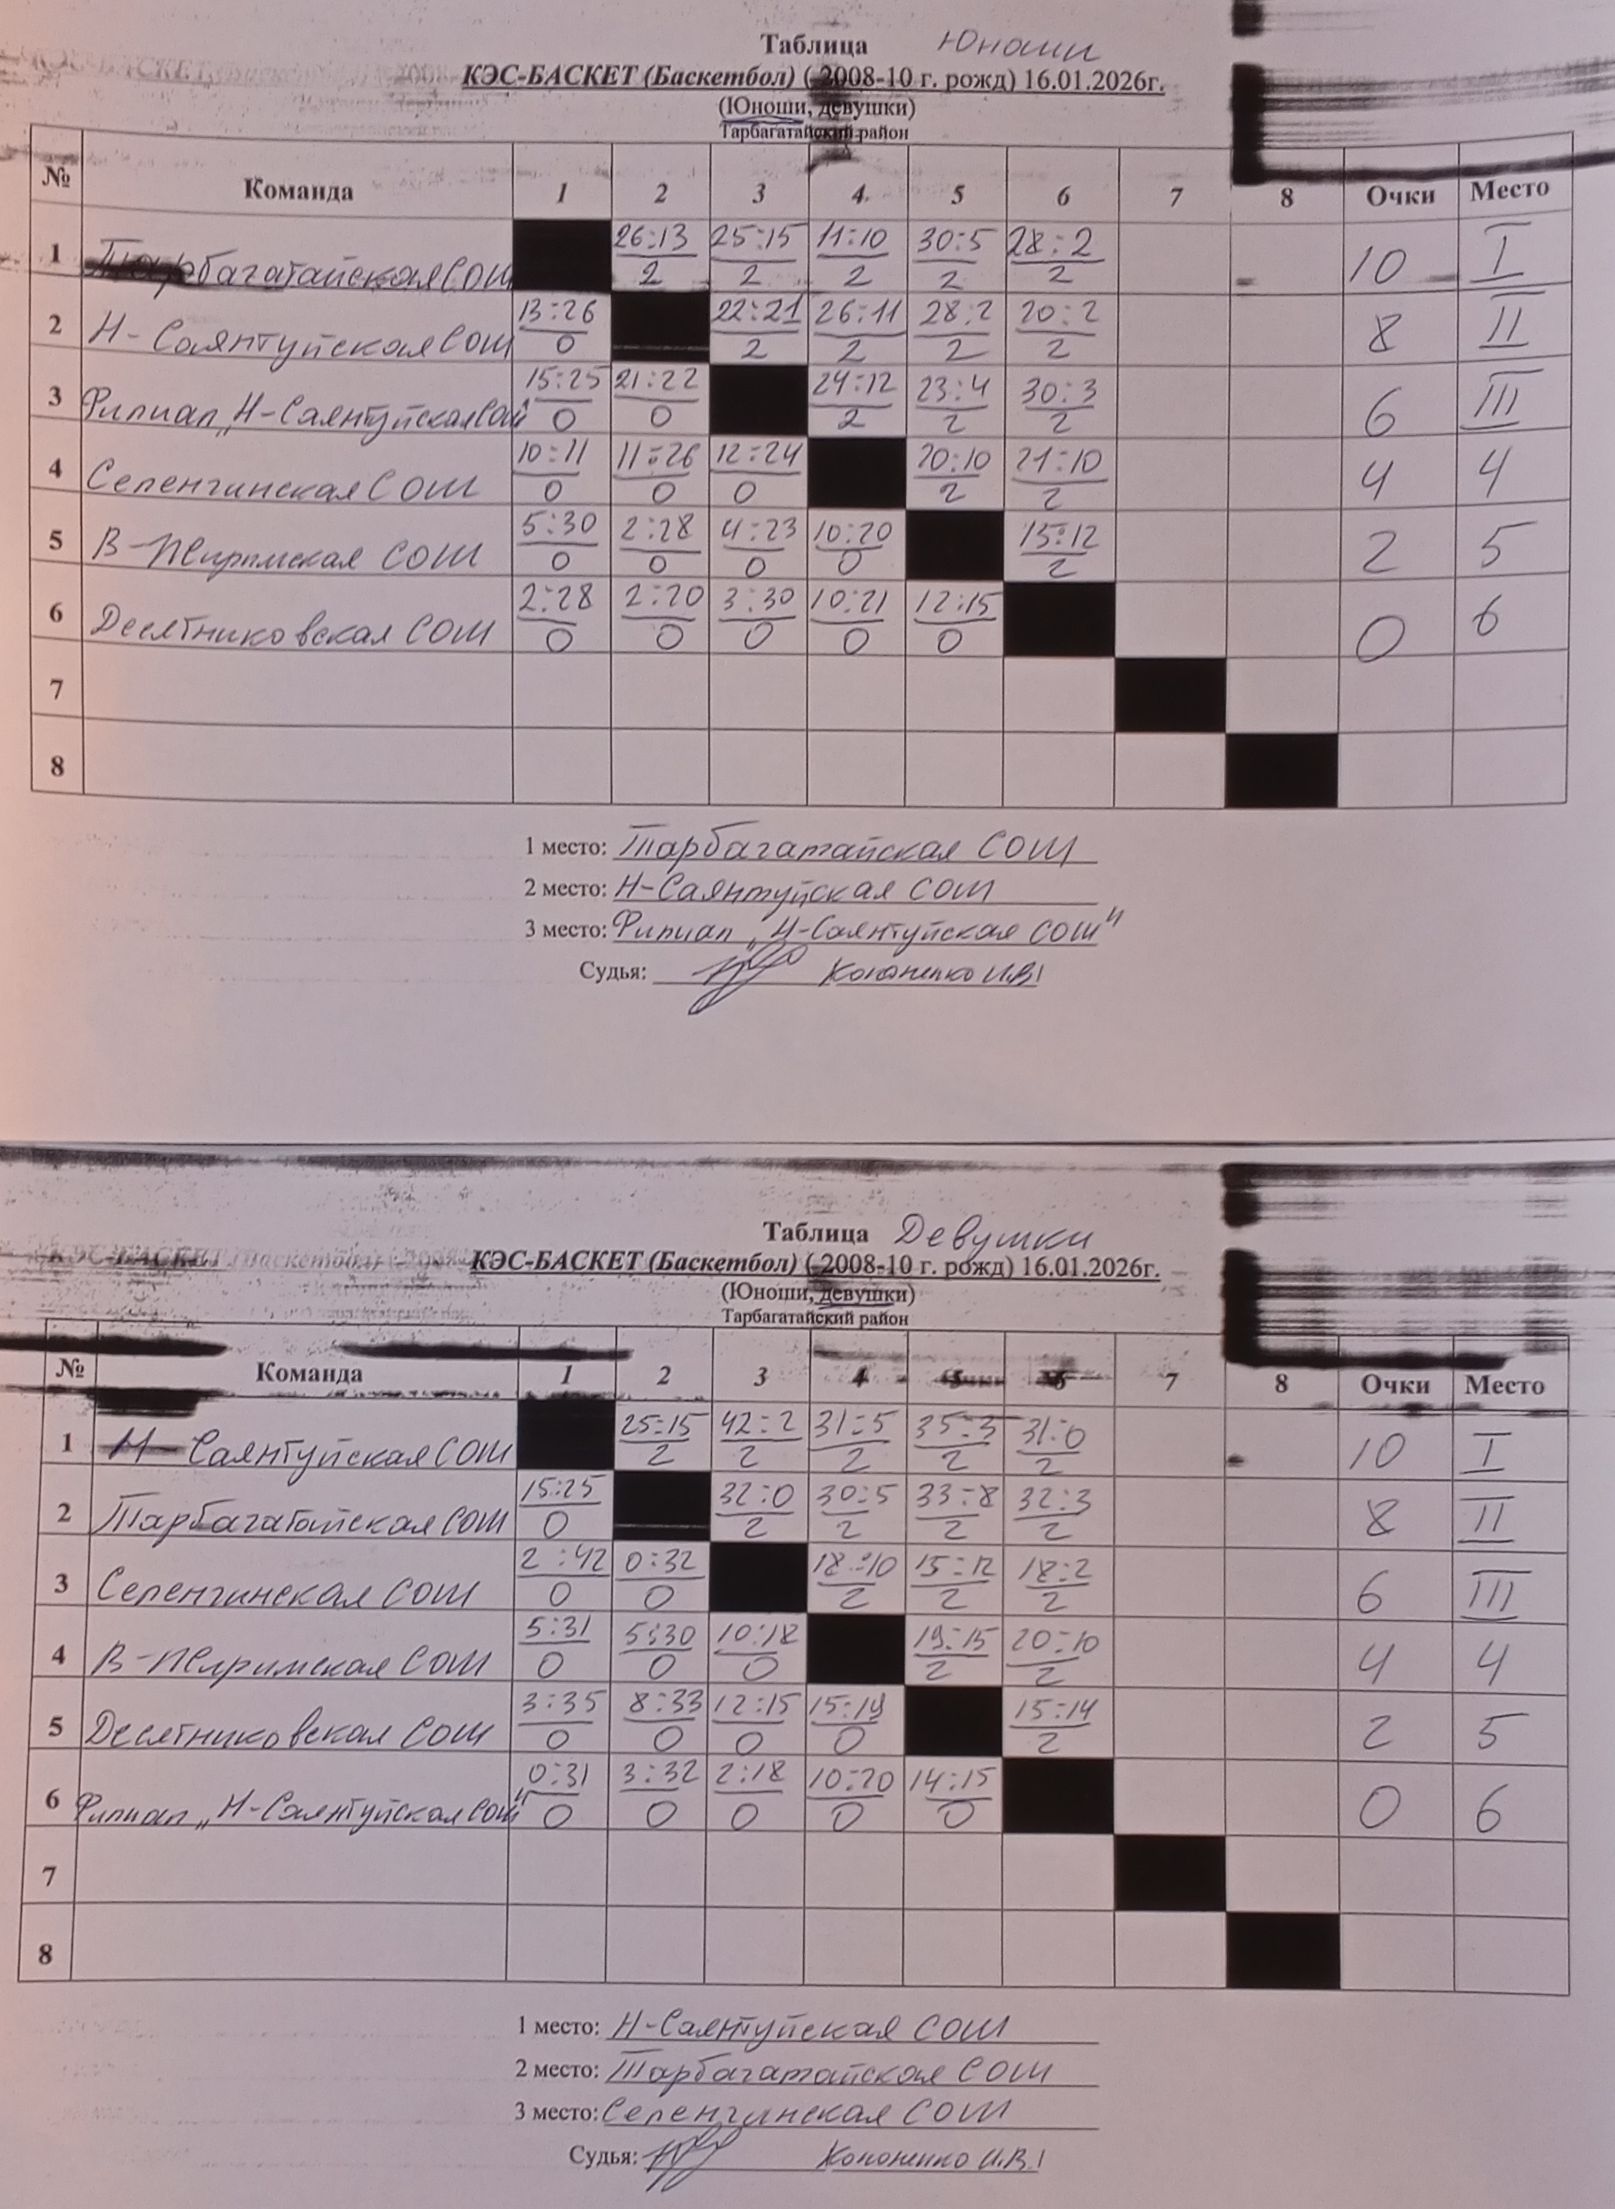 Таблица Юноши
КЭС-БАСКЕТ (Баскетбол) ( 2008-10 г. рожд) 16.01.2026г.
(Юноши, девушки)
Тарбагатайский район
№ Команда 1 2 3 4 5 6 7 8 Очки Место
1 Тарбагатайская СОШ 26:13 2 25:15 2 11:10 2 30:5 2 28:2 2 10 I
2 Н-Саянтуйская СОШ 13:26 0 22:21 2 26:11 2 28:2 2 20:2 2 8 II
3 Филиал „Н-Саянтуйская СОШ" 15:25 0 21:22 0 24:12 2 23:4 2 30:3 2 6 III
4 Селенгинская СОШ 10:11 0 11:26 0 12:24 0 20:10 2 21:10 2 4 4
5 В-Жиримская СОШ 5:30 0 2:28 0 4:23 0 10:20 0 15:12 2 2 5
6 Десятниковская СОШ 2:28 0 2:20 0 3:30 0 10:21 0 12:15 0 0 6
7
8
1 место: Тарбагатайская СОШ
2 место: Н-Саянтуйская СОШ
3 место: Филиал „Н-Саянтуйская СОШ"
Судья: Кононенко И.В.
Таблица Девушки
КЭС-БАСКЕТ (Баскетбол) ( 2008-10 г. рожд) 16.01.2026г.
(Юноши, девушки)
Тарбагатайский район
№ Команда 1 2 3 4 5 6 7 8 Очки Место
1 Н-Саянтуйская СОШ 25:15 2 42:2 2 31:5 2 35:3 2 31:0 2 10 I
2 Тарбагатайская СОШ 15:25 0 32:0 2 30:5 2 33:8 2 32:3 2 8 II
3 Селенгинская СОШ 2:42 0 0:32 0 18:10 2 15:12 2 18:2 2 6 III
4 В-Жиримская СОШ 5:31 0 5:30 0 10:18 0 19:15 2 20:10 2 4 4
5 Десятниковская СОШ 3:35 0 8:33 0 12:15 0 15:19 0 15:14 2 2 5
6 Филиал „Н-Саянтуйская СОШ" 0:31 0 3:32 0 2:18 0 10:20 0 14:15 0 0 6
7
8
1 место: Н-Саянтуйская СОШ
2 место: Тарбагатайская СОШ
3 место: Селенгинская СОШ
Судья: Кононенко И.В.